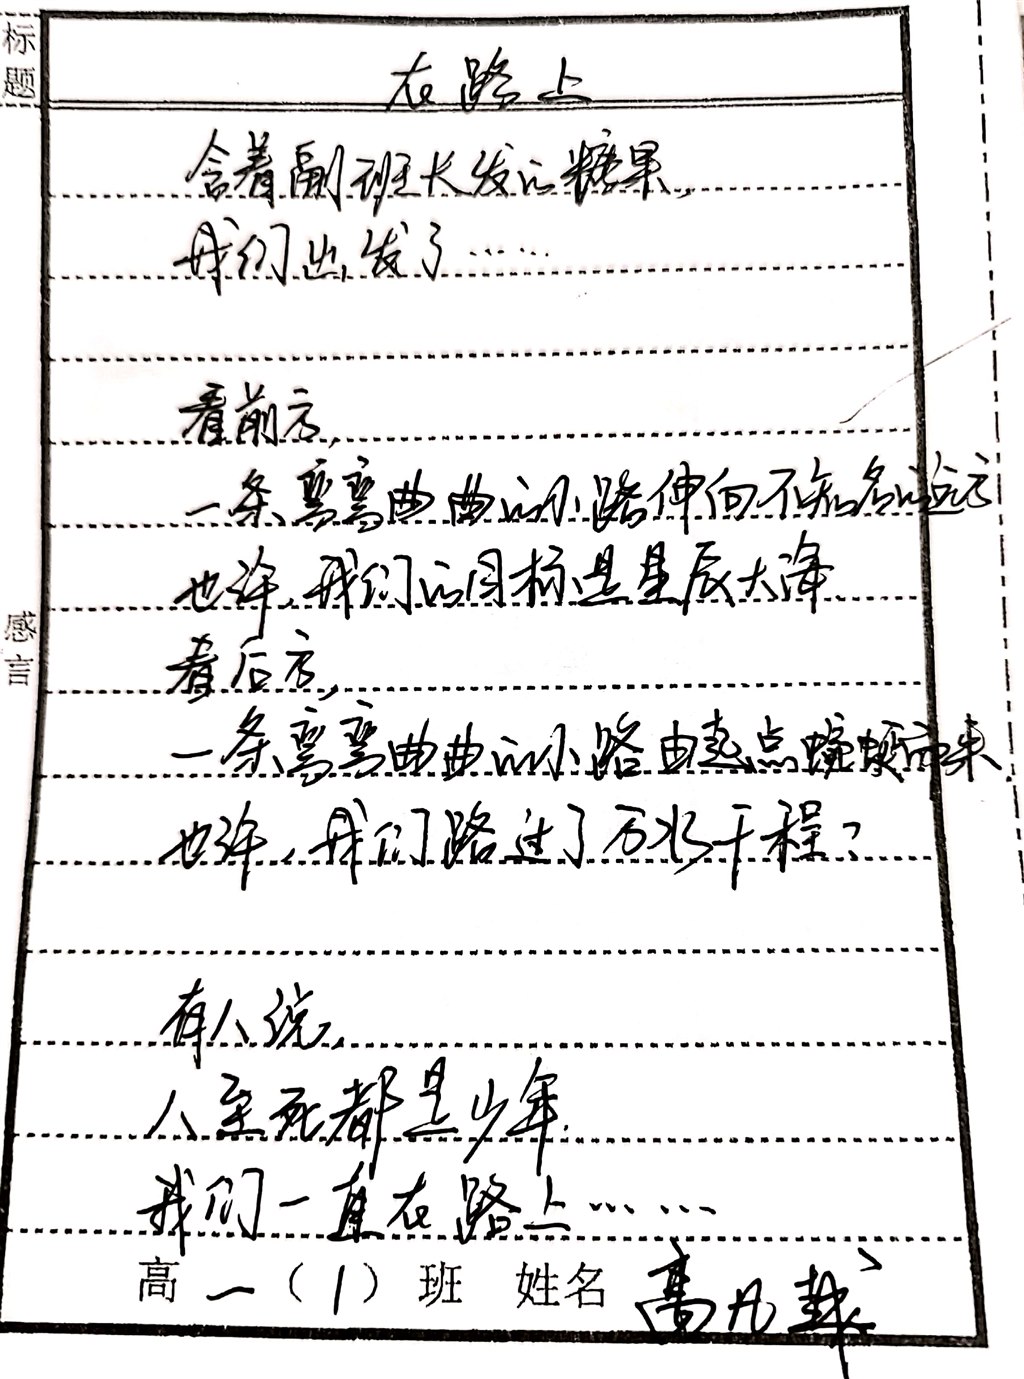 标题
在路上
含着副班长发的糖果，
我们出发了……
看前方，
一条弯弯曲曲的小路伸向不知名的远方
也许，我们的目标是星辰大海.
感言
看后方，
一条弯弯曲曲的小路由起点蜿蜒而来
也许，我们路过了万水千程？
有人说，
人至死都是少年.
我们一直在路上……
高一（1）班 姓名 高凡越